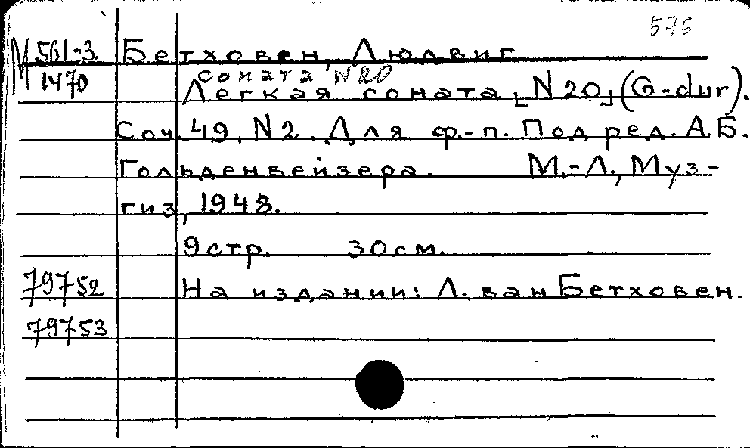 576
М 561-3 Бетховен, Людвиг
1470 соната N20
Легкая соната [N 20] (G-dur).
Соч. 49, N2. Для ф.-п. Под ред. А.Б.
Гольденвейзера. М.-Л., Муз-
гиз, 1948.
9 стр. 30 см.
79752 На издании: Л. ван Бетховен.
79753